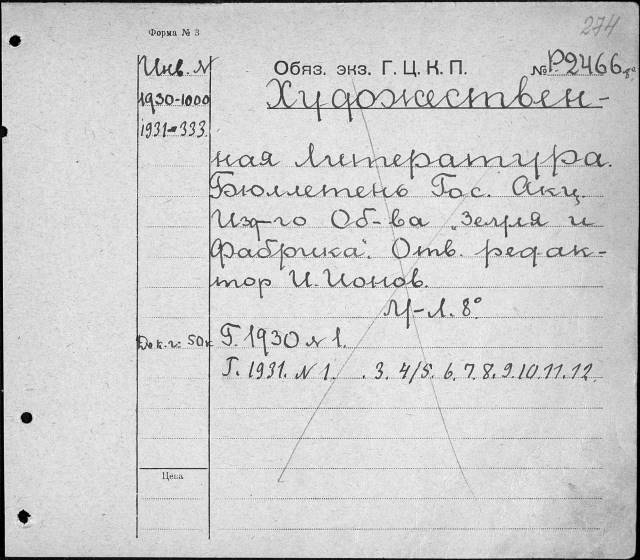 274
Форма № 3
Инв. N
Обяз. экз. Г. Ц. К. П.
№ P2466 8°
1930-1000
1931-333.
Художествен-
ная Литература.
Бюллетень Гос. Акц.
Изд-го Об-ва „Земля и
Фабрика". Отв. редак-
тор И. Ионов.
М-Л. 8°
Г. 1930 N 1.
Г. 1931. N 1. . 3. 4/5. 6. 7. 8. 9. 10. 11. 12.
Цена